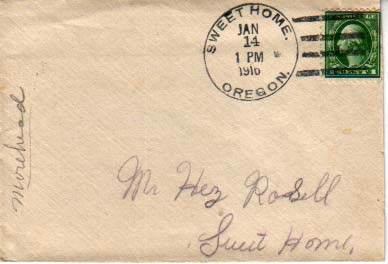 SWEET HOME.
JAN
14
1 PM
1916
OREGON.
Morehead
Mr Hez Rosell
Sweet Home,